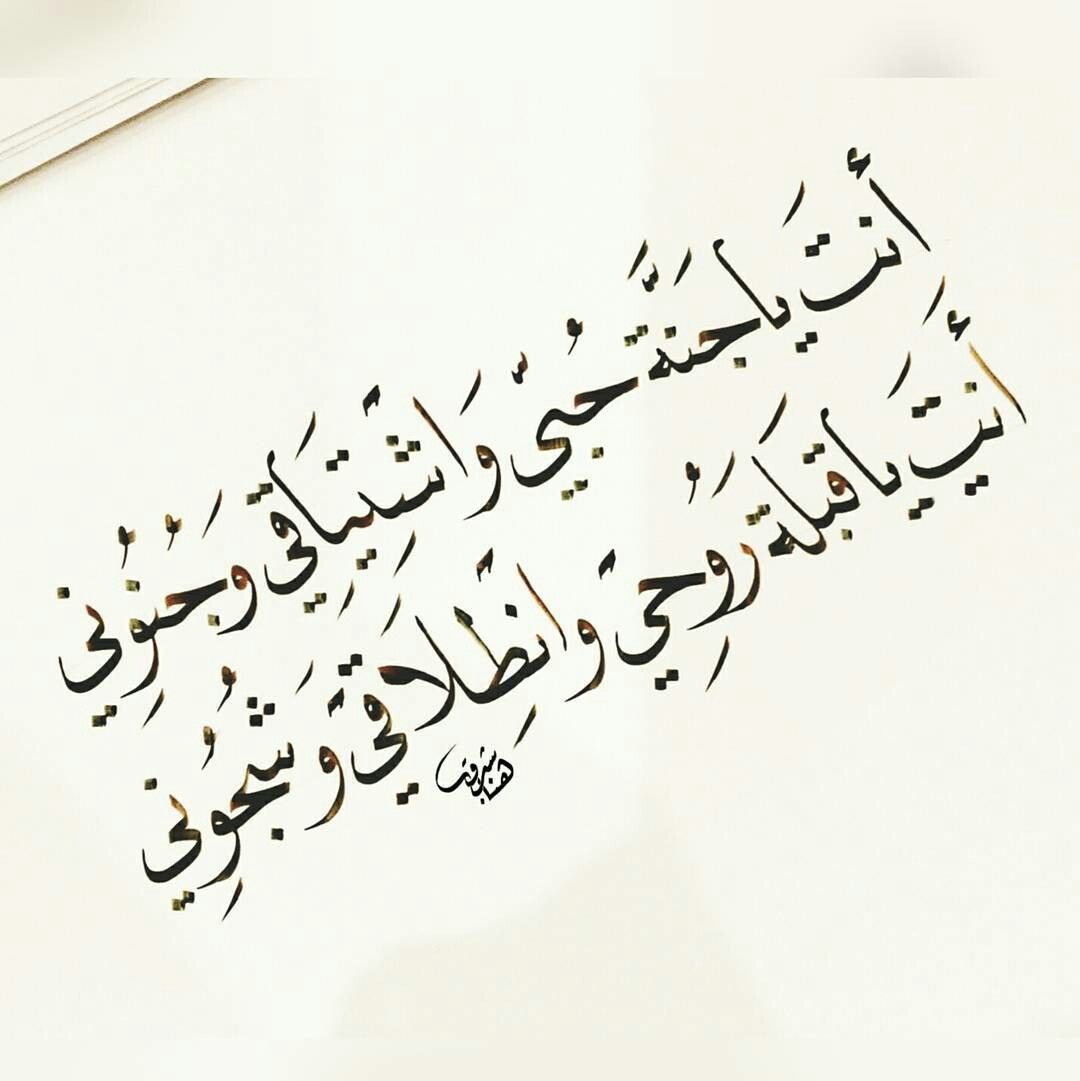 أنتَ يا جنَّةَ حُبّي وَاشْتِيَاقي وَجُنُوني
أنتَ يا قبلَةَ رُوحي وانْطِلَاقي وشُجُوني